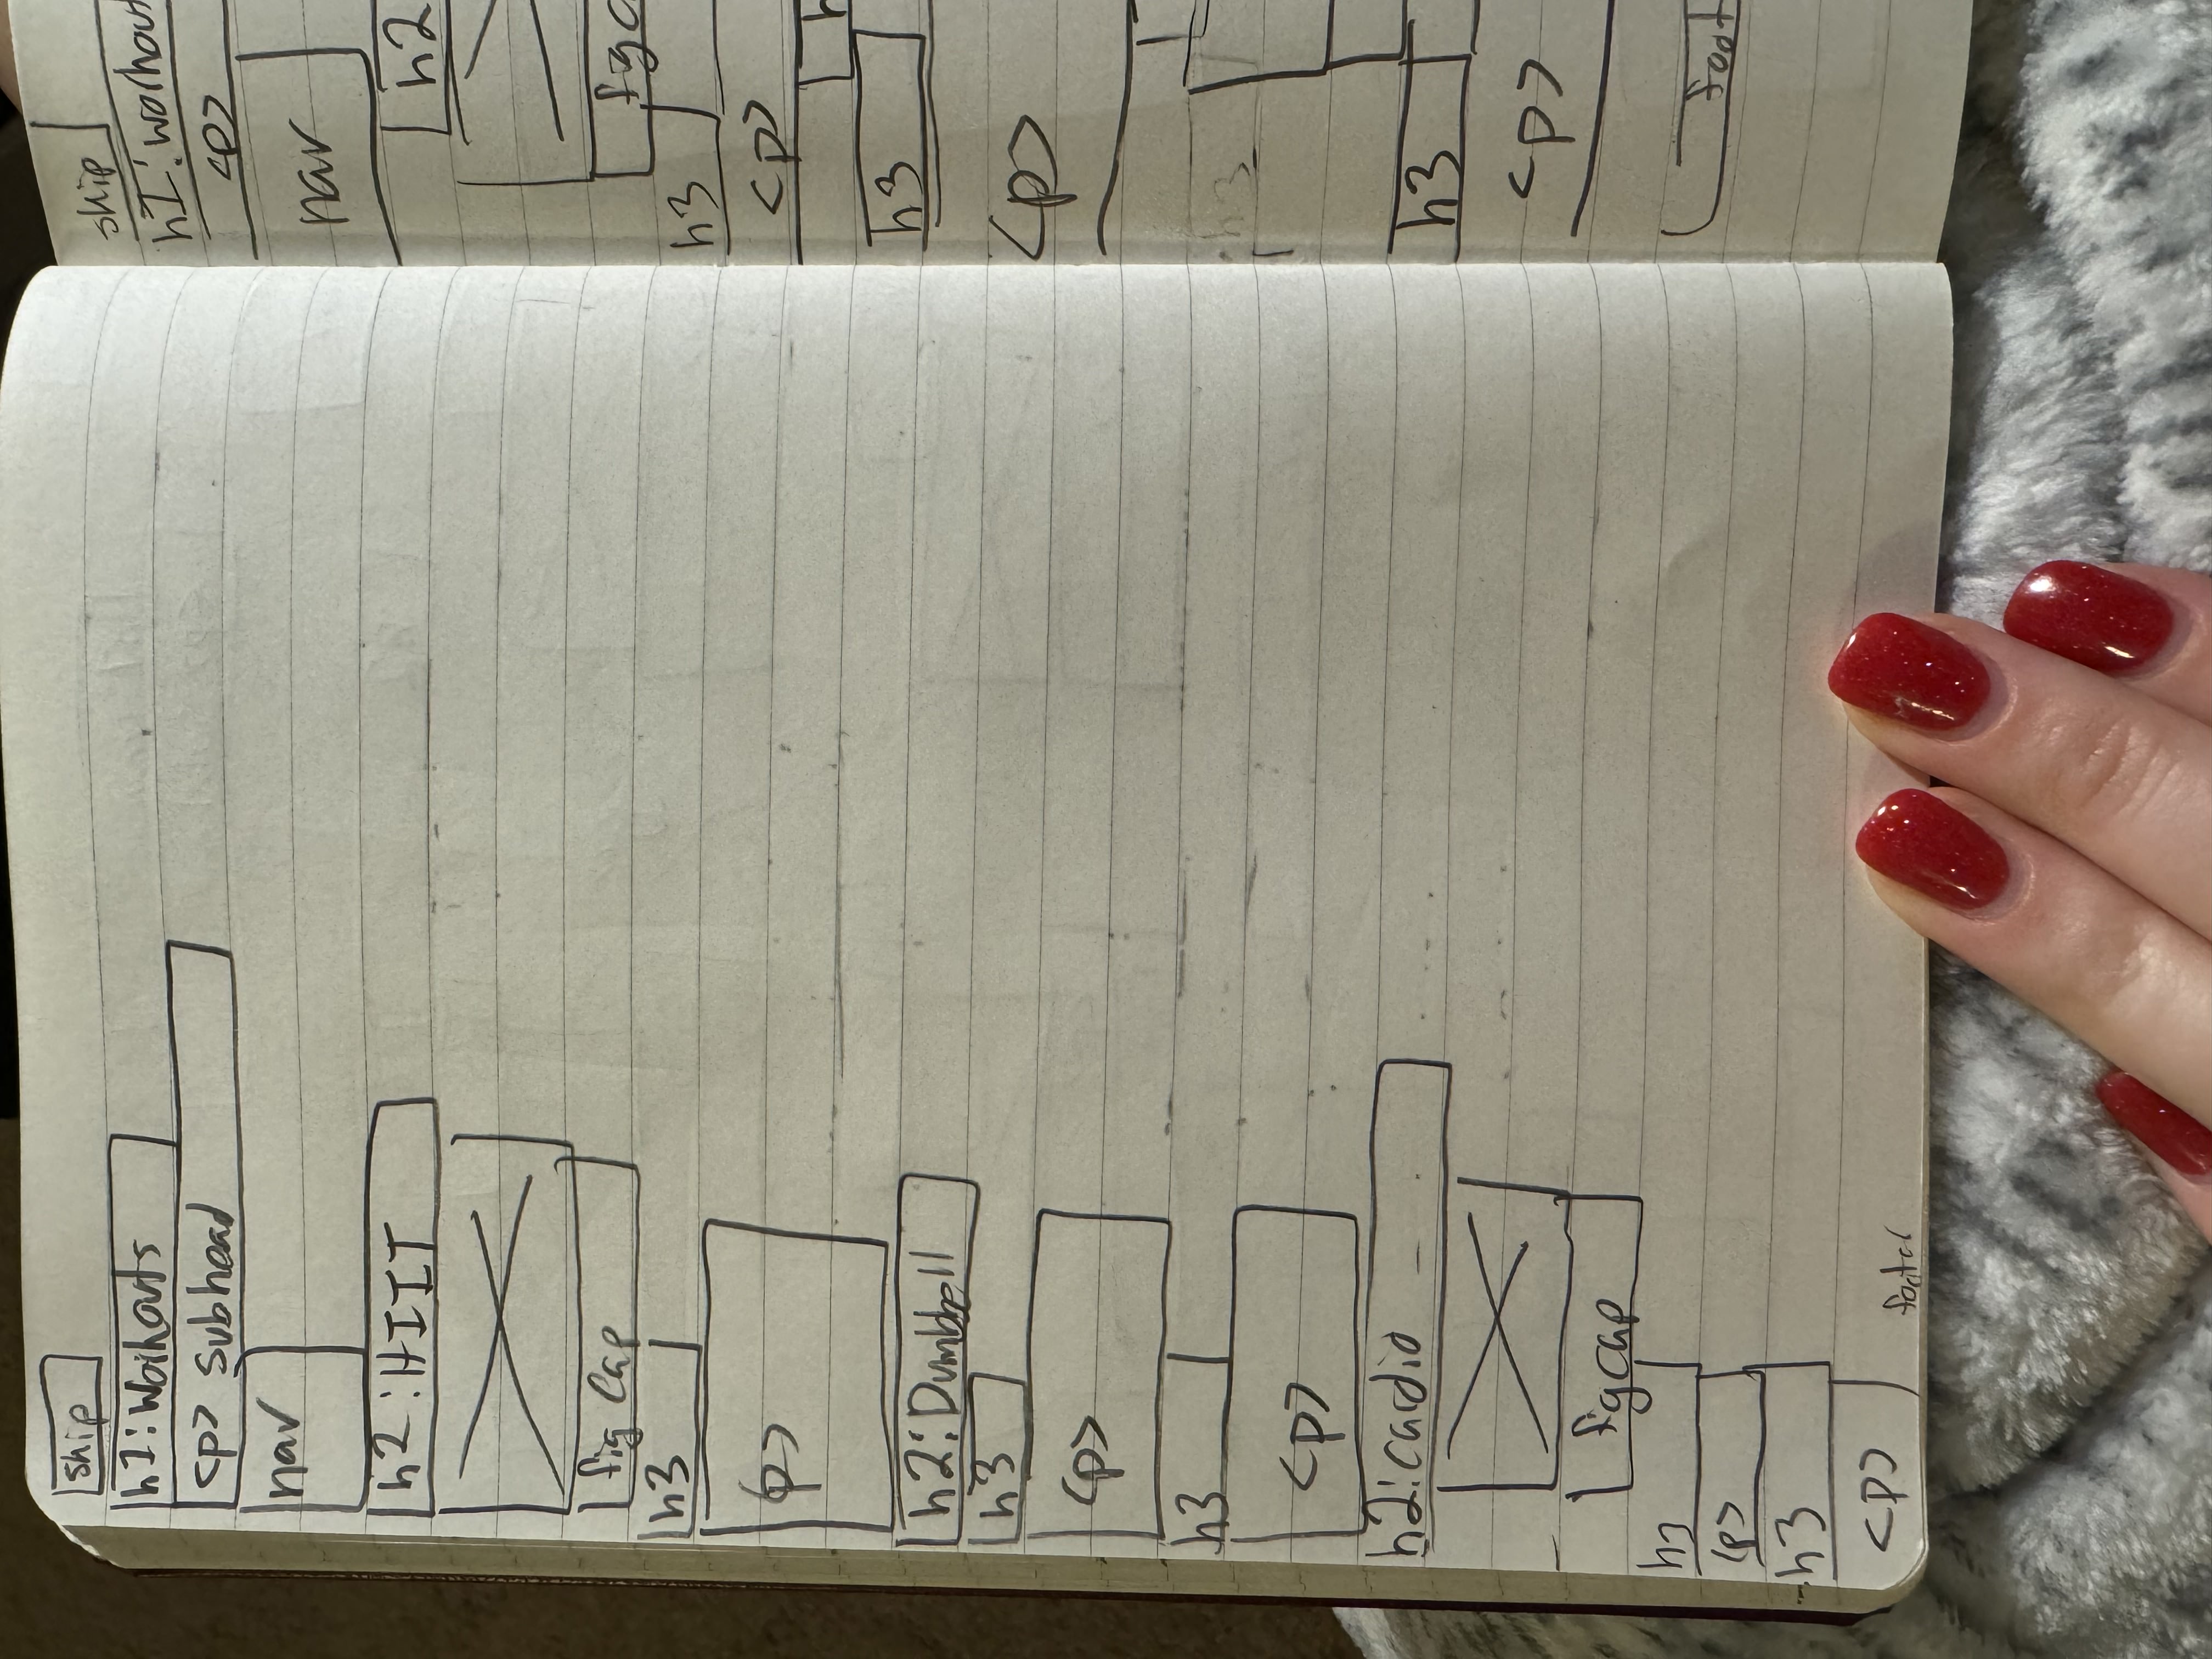 skip
h1: Workouts
<p> subhead
nav
h2: HIIT
fig cap
h3
<p>
h2: Dumbbell
h3
<p>
h3
<p>
h2: cardio
figcap
h3
<p>
h3
<p>
footer
skip
h1: workout
<p>
nav
h2
figc
h3
<p>
h
h3
<p>
h3
h3
<p>
foot